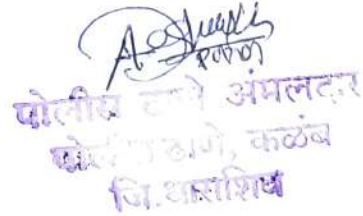 पोलीस ठाणे अंमलदार
पोलीस ठाणे, कळंब
जि.धाराशिव